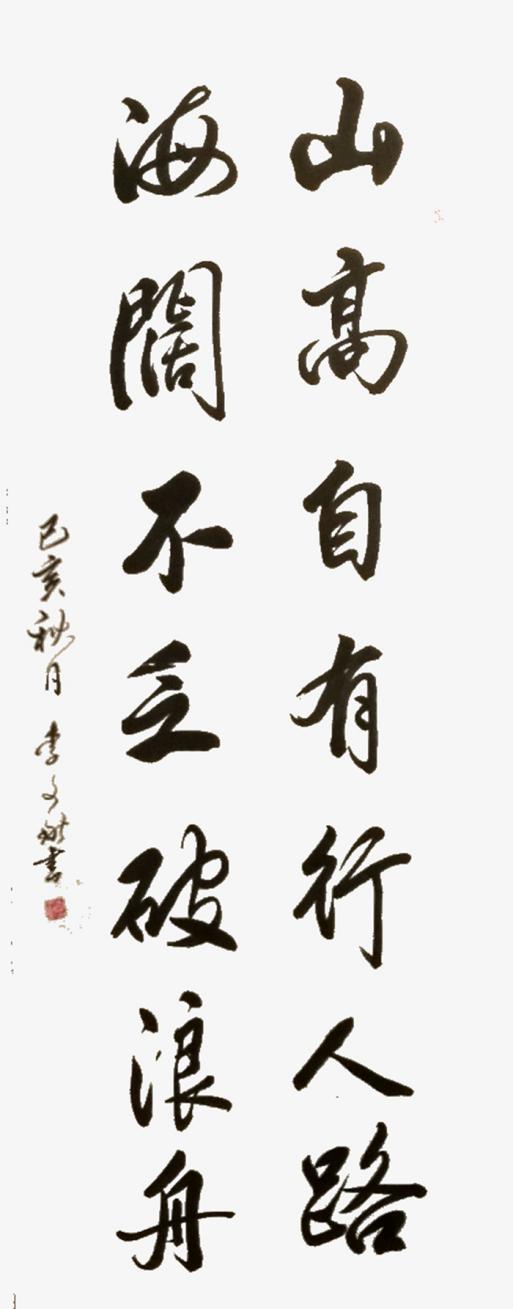 山高自有行人路
海阔不乏破浪舟
己亥秋月 李文
书